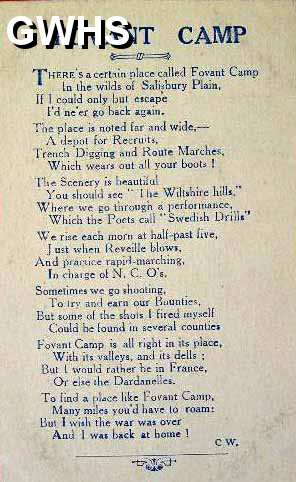 GWHS
FOVANT CAMP
THERE'S a certain place called Fovant Camp
In the wilds of Salisbury Plain,
If I could only but escape
I'd ne'er go back again.
The place is noted far and wide,—
A depot for Recruits,
Trench Digging and Route Marches,
Which wears out all your boots!
The Scenery is beautiful
You should see "The Wiltshire hills,"
Where we go through a performance,
Which the Poets call "Swedish Drills"
We rise each morn at half-past five,
Just when Reveille blows,
And practice rapid-marching,
In charge of N. C. O's.
Sometimes we go shooting,
To try and earn our Bounties,
But some of the shots I fired myself
Could be found in several counties
Fovant Camp is all right in its place,
With its valleys, and its dells;
But I would rather be in France,
Or else the Dardanelles.
To find a place like Fovant Camp,
Many miles you'd have to roam:
But I wish the war was over
And I was back at home!
C W.